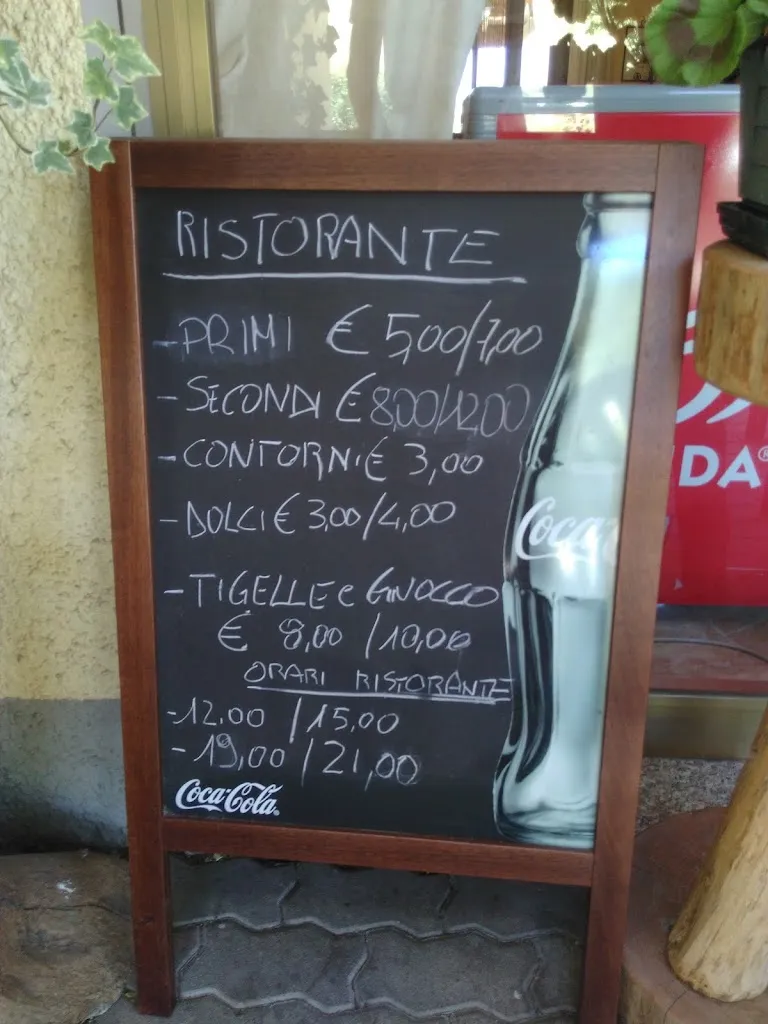 RISTORANTE
- PRIMI € 5,00/7,00
- SECONDI € 8,00/12,00
- CONTORNI € 3,00
- DOLCI € 3,00/4,00
- TIGELLE e GNOCCO
€ 8,00 / 10,00
ORARI RISTORANTE
- 12.00 / 15,00
- 19,00 / 21,00
Coca-Cola
Coca
DA®